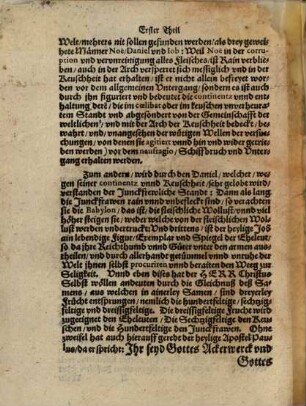 Erster Theil
Welt / mehrers nit sollen gefunden werden / als drey gewei-
hete Männer Noe, Daniel und Iob; Weil Noe in der corru-
ption und verunreinigung alles Fleisches / ist Rain verblie-
ben / auch in der Arch versperret sich messiglich und in der
Keuschheit hat erhalten / ist er nicht allein befreyet wor-
den vor dem allgemeinen Untergang / sondern es ist auch
durch ihn figuriert und bedeutet die continentz unnd ent-
haltung derẽ / die im cælibat oder im keuschen unverheura-
tem Standt und abgesondert von der Gemeinschafft der
weltlichen / und mit der Arch der Keuschheit bedeckt / be-
wahrt / und / unangesehen der wütigen Wellen der versu-
chungen / von denen sie agitiert unnd hin und wider getrie-
ben werden) vor dem naufragio, Schiffbruch und Unter-
gang erhalten werden.
Zum andern / wird durch den Daniel / welcher / we-
gen seiner continentz unnd Keuschheit / sehr gelobt wird /
verstanden der Junckfrewliche Standt: Dann als lang
die Junckfrawen rain unnd unbefleckt sind / so verachten
sie die Babylon / das ist / die fleischliche Wollust / unnd vil
höher steigen sie / weder welche von der fleischlichen Wol-
lust werden undertruckt: Und drittens / ist der heylige Job
ein lebendige Figur / Exemplar und Spiegel der Eheleut /
so da ihre Reichthumb und Güter unter den armen auß
theilen / und durch allerhandt ungestummel unnd unruhe der
Welt ihnen selbst procuriren unnd beraiten den Weeg zur
Seligkeit. Unnd eben dises hat der HERR Christus
Selbst wöllen andeuten durch die Gleichnuß deß Sa-
mens / auß welchen in ainerley Samen / sind dreyerley
Frücht entsprungen / nemlich die hundertfeltige / sechtzig-
feltige und dreyssigfeltige. Die dreyssigfeltige Frucht wird
zugeeignet den Eheleuten / Die Sechtzigfeltige den Keu-
schen / und die Hundertfeltige den Junckfrawen. Ohne
zweifel hat auch hierauff geredt der heylige Apostel Pau-
lus / da er spricht: Ihr seyd Gottes Ackerwerck und
Gottes